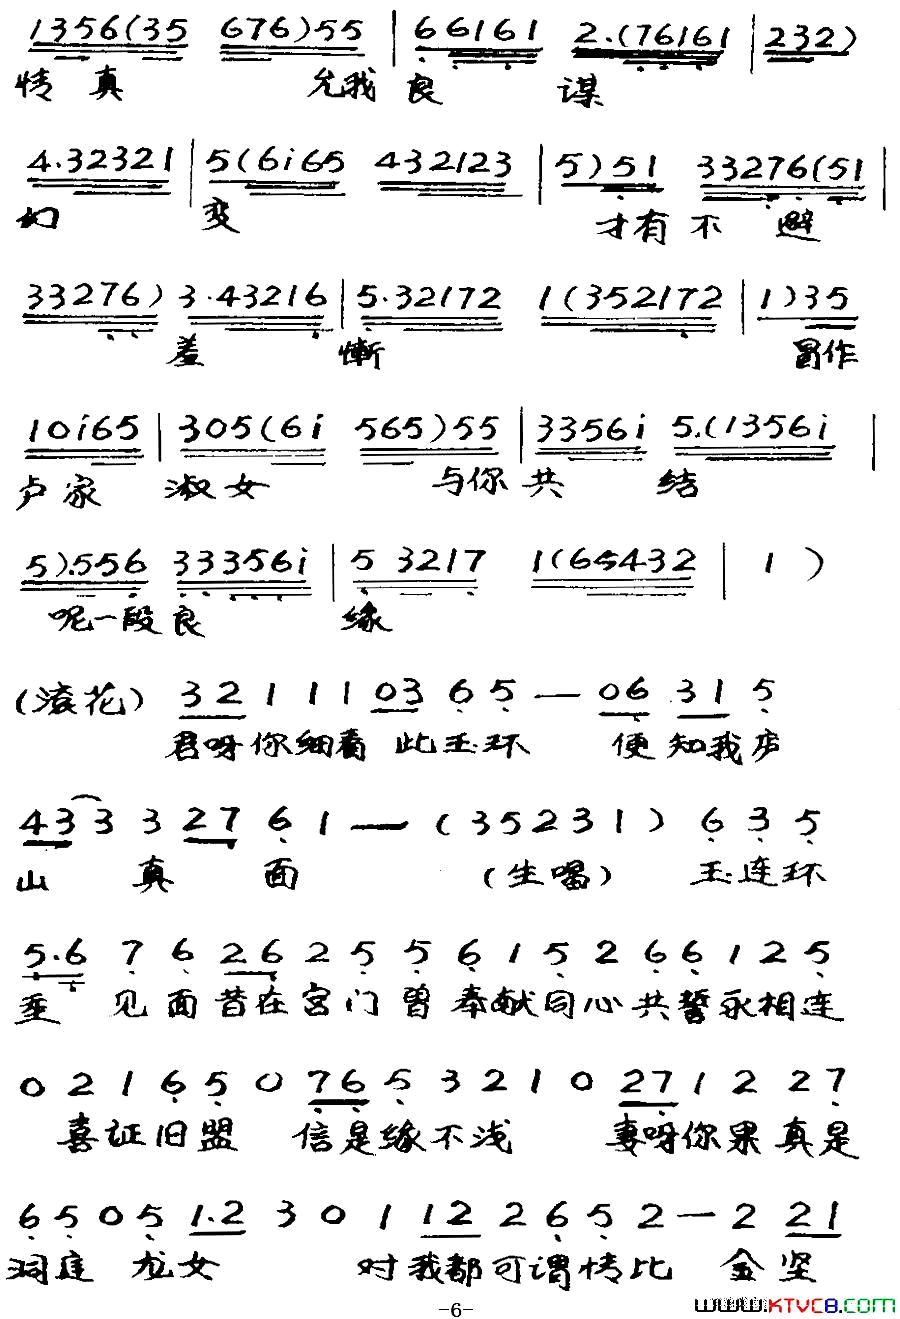 1356(35 676)55 | 661161 2.(76161 | 232)
情真 允我良 谋
4.32321 | 5(6i65 432123 | 5)51 33276(51 |
幻 变 才有不 避
33276) 3.43216 | 5.32172 1(352172 | 1)35
羞 惭 冒作
10i65 | 305(6i 565)55 | 3356i 5.(1356i |
卢家 淑女 与你共 结
5).556 33356i | 5 3217 1(65432 | 1 )
呢一段良 缘
(滚花) 32111 03 65— 06 31 5
君呀你细看此玉环 便知我庐
433 3 27 61—(35231) 6 3 5
山 真 面 (生唱) 玉连环
5.6 7 6 26 2 5 5 6 1 5 2 6 6 1 2 5
重 见面昔在宫门曾奉献同心共誓永相连
0 2 1 6 5 0 76 5 3 2 1 0 27 1 2 2 7
喜证旧盟 信是缘不浅 妻呀你果真是
6 5 0 5 1.2 3 0 1 12 2 6 5 2 — 2 21
洞庭 龙女 对我都可谓情比 金坚
-6-
www.KTVC8.COM